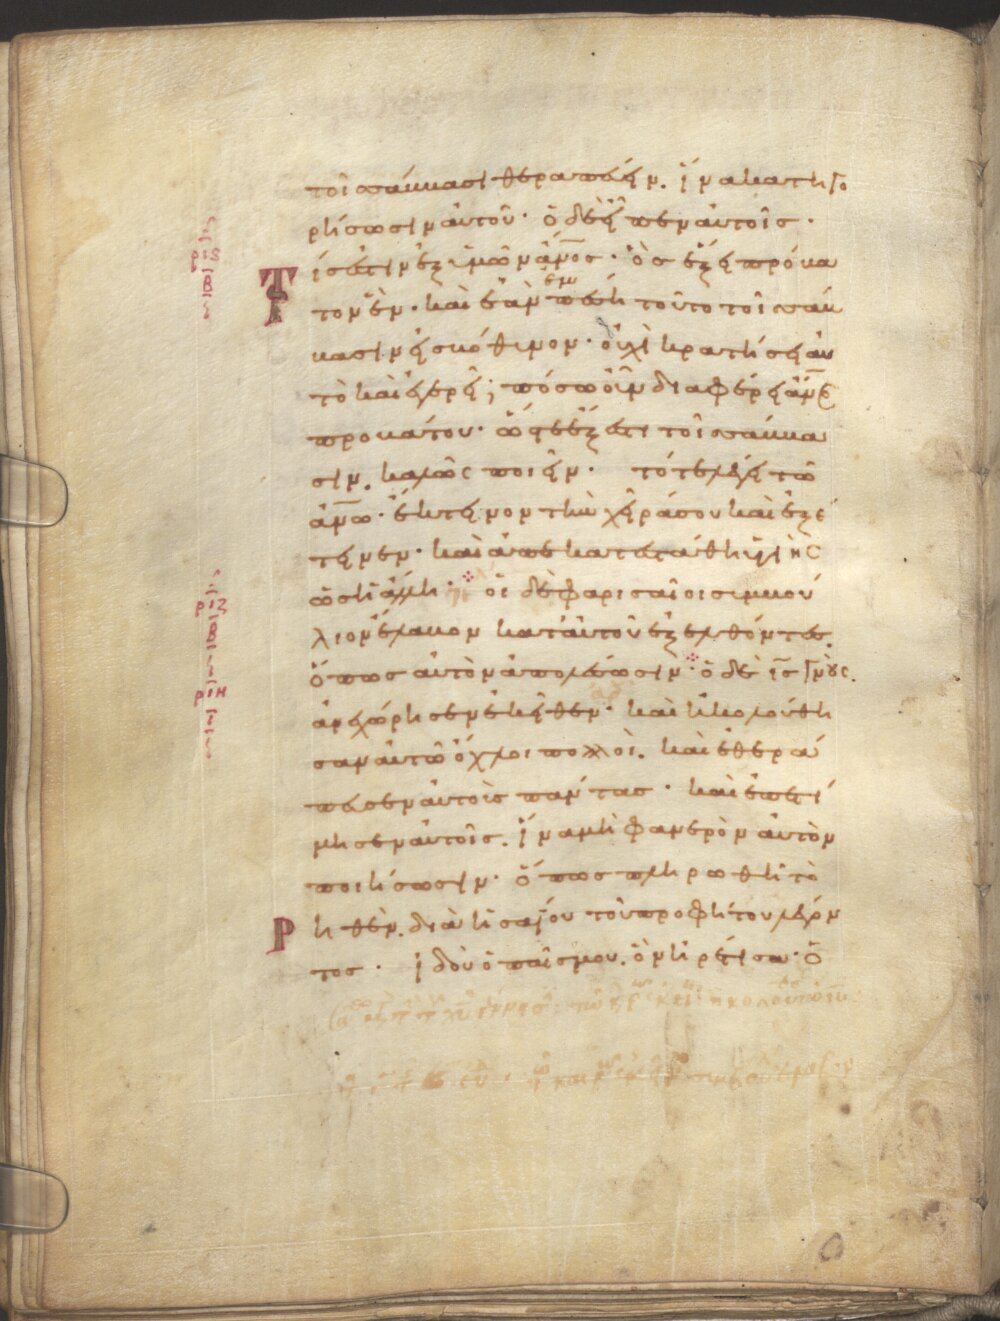 τοῖς σάββασι θεραπεύειν. ἵνα κατηγο
ρήσωσιν αὐτοῦ· ὁ δὲ εἶπεν αὐτοῖς·
ριϛ
β
Τίς ἔστιν ἐξ ὑμῶν ἄν̅ο̅ς· ὃς ἕξει πρόβα
τον ἕν· καὶ ἐὰν ἐμπέσῃ τοῦτο τοῖς σάβ
βασιν εἰς βόθυνον· οὐχὶ κρατήσει αὐ
τὸ καὶ ἐγερεῖ; πόσω οὖν διαφέρει ἄν̅ο̅ς
προβάτου· ὥστε ἔξεστι τοῖς σάββα
σιν. καλῶς ποιεῖν· τότε λέγει τῶ
ἀν̅ω̅· ἔκτεινον τὴν χεῖρά σου καὶ ἐξέ
τεινεν· καὶ ἀπεκατεστάθη ὑγιὴς
ριζ
β
ὡς ἡ ἄλλη· οἱ δὲ φαρισαῖοι συμβού
λιον ἔλαβον κατ αὐτοῦ ἐξελθόντες.
ριη
ι
ὅπως αὐτὸν ἀπολέσωσιν· ὁ δὲ ι̅ς̅ γνοὺς.
ἀνεχώρησεν ἐκεῖθεν· καὶ ἠκολούθη
σαν αὐτῶ ὄχλοι πολλοὶ. καὶ ἐθερά
πευσεν αὐτοὺς πάντας· καὶ ἐπετί
μησεν αὐτοῖς. ἵνα μὴ φανερὸν αὐτὸν
ποιήσωσιν· ὅπως πληρωθῆ τὸ
Ρηθὲν. διὰ ἡσαΐου τοῦ προφήτου λέγον
τος· ἰδοὺ ὁ παῖς μου. ὃν ἡρέτισα· ὁ